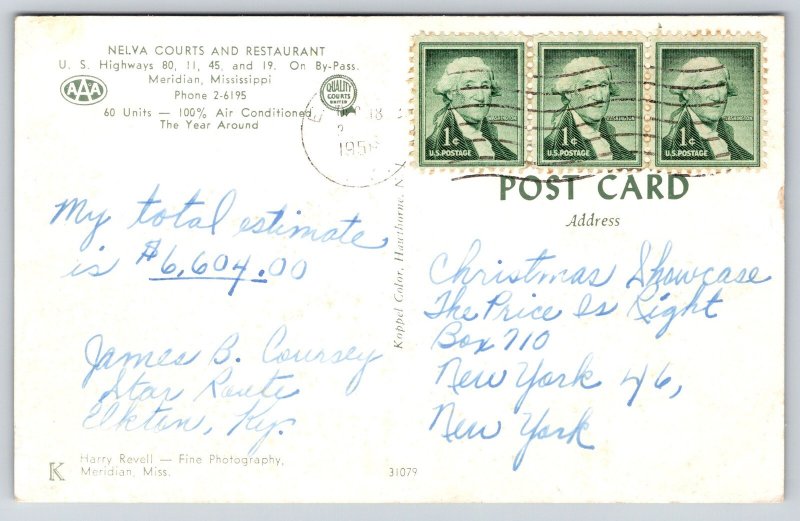 NELVA COURTS AND RESTAURANT
U. S. Highways 80, 11, 45, and 19. On By-Pass.
Meridian, Mississippi
Phone 2-6195
AAA
QUALITY
COURTS
UNITED
60 Units — 100% Air Conditioned
The Year Around
18
195
1¢
WASHINGTON
U.S. POSTAGE
1¢
WASHINGTON
U.S. POSTAGE
1¢
WASHINGTON
U.S. POSTAGE
POST CARD
Address
My total estimate
is $6,604.00
James B. Coursey
Star Route
Elkton, Ky.
Koppel Color, Hawthorne, N. J.
Christmas Showcase
The Price Is Right
Box 710
New York 46,
New York
K
Harry Revell — Fine Photography,
Meridian, Miss.
31079